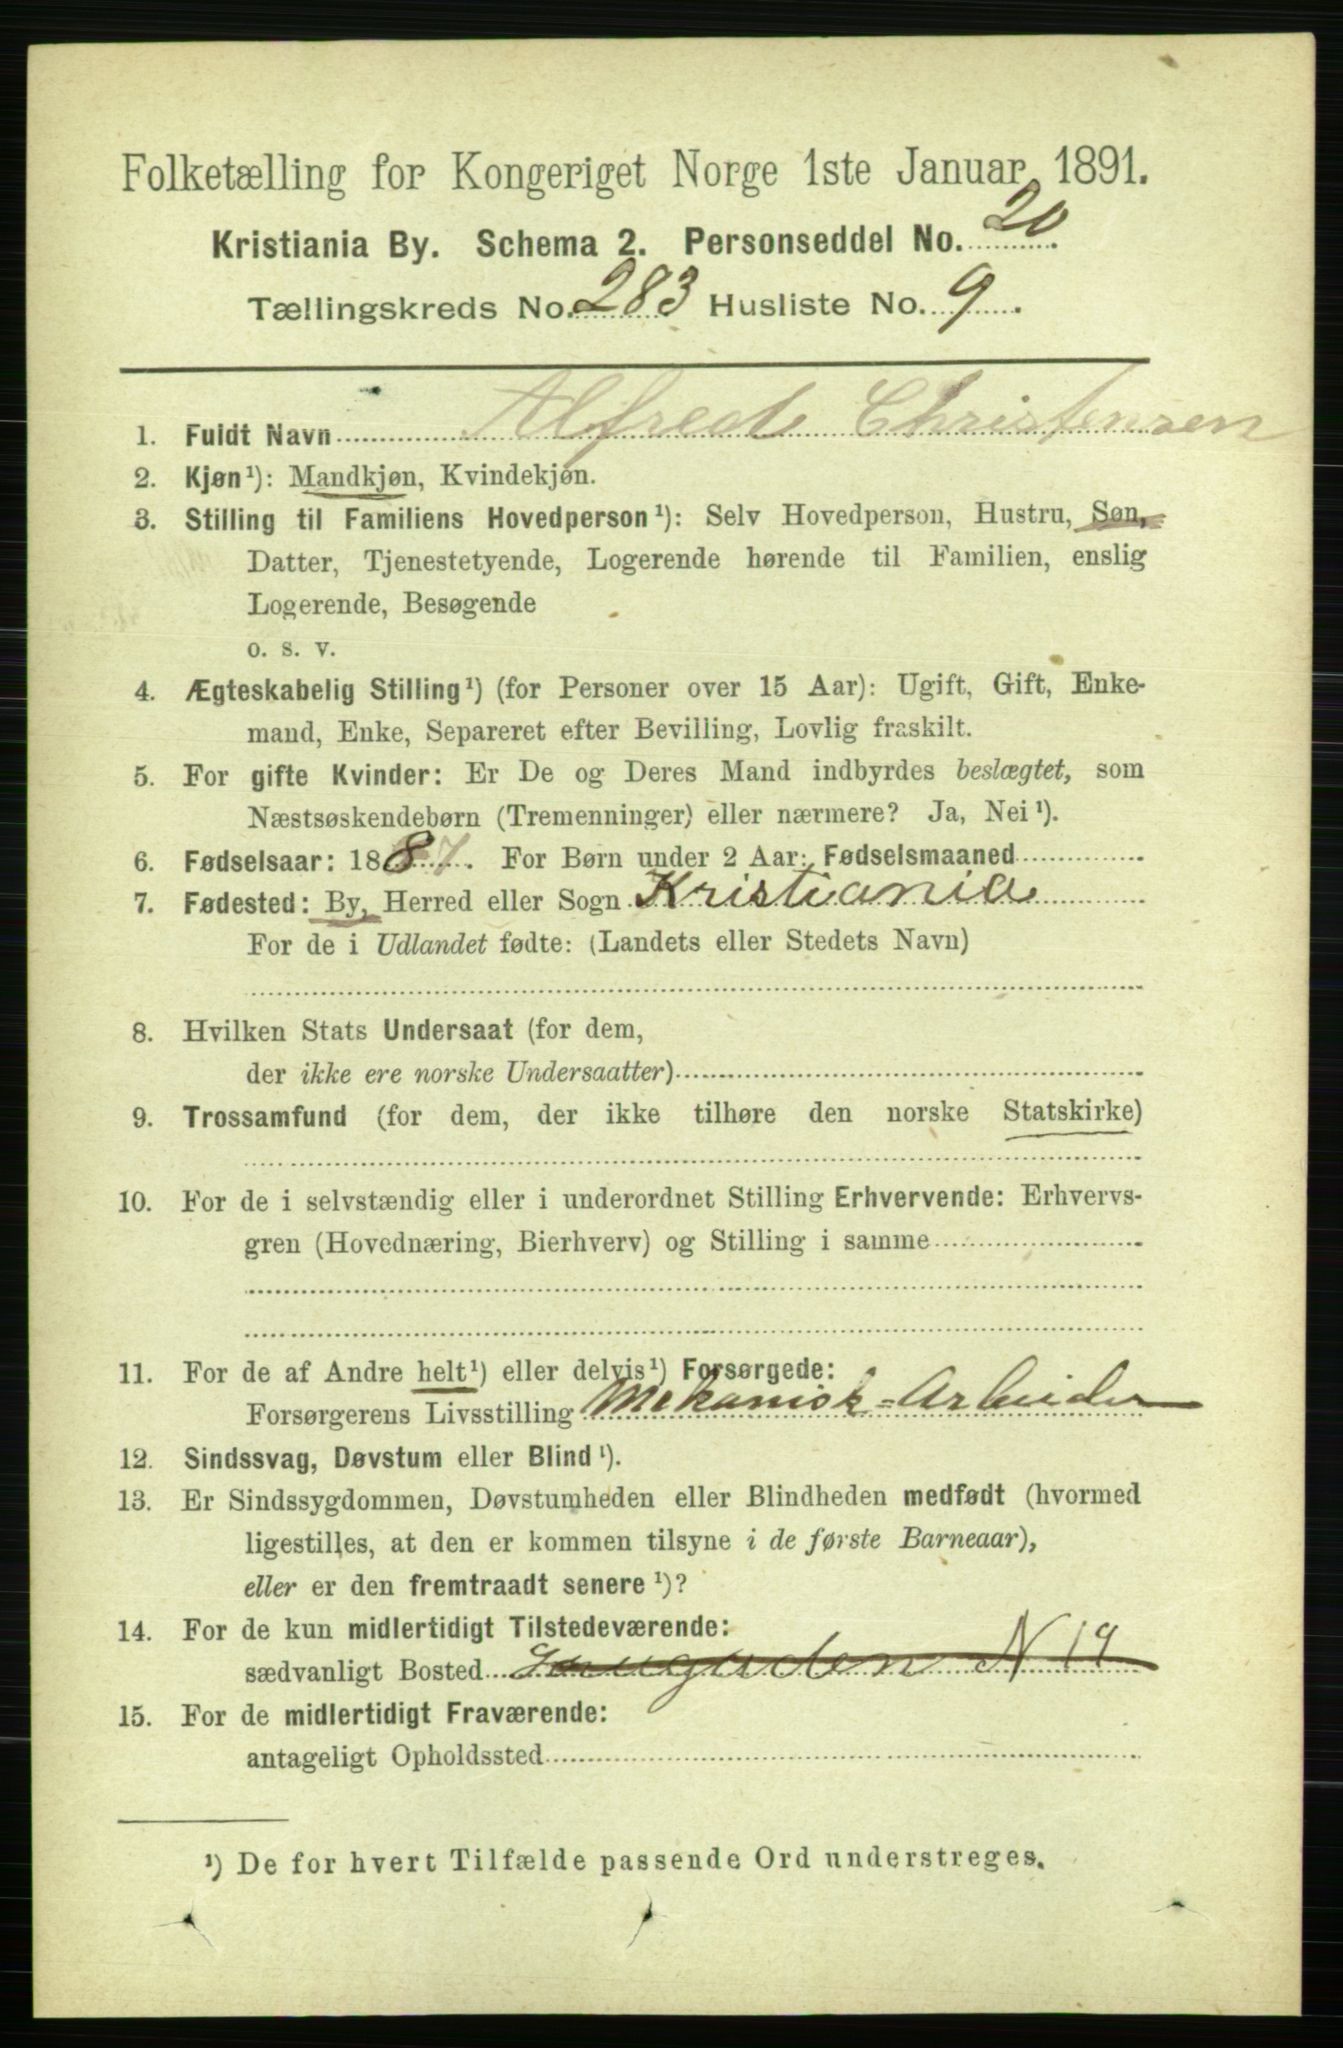 Folketælling for Kongeriget Norge 1ste Januar 1891.
Kristiania By. Schema 2. Personseddel No. 20.
Tællingskreds No. 283 Husliste No. 9.
1. Fuldt Navn Alfred Christensen
2. Kjøn¹): Mandkjøn, Kvindekjøn.
3. Stilling til Familiens Hovedperson¹): Selv Hovedperson, Hustru, Søn,
Datter, Tjenestetyende, Logerende hørende til Familien, enslig
Logerende, Besøgende
o. s. v.
4. Ægteskabelig Stilling¹) (for Personer over 15 Aar): Ugift, Gift, Enke-
mand, Enke, Separeret efter Bevilling, Lovlig fraskilt.
5. For gifte Kvinder: Er De og Deres Mand indbyrdes beslægtet, som
Næstsøskendebørn (Tremenninger) eller nærmere? Ja, Nei¹).
6. Fødselsaar: 1887. For Børn under 2 Aar: Fødselsmaaned
7. Fødested: By, Herred eller Sogn Kristiania
For de i Udlandet fødte: (Landets eller Stedets Navn)
8. Hvilken Stats Undersaat (for dem,
der ikke ere norske Undersaatter)
9. Trossamfund (for dem, der ikke tilhøre den norske Statskirke)
10. For de i selvstændig eller i underordnet Stilling Erhvervende: Erhvervs-
gren (Hovednæring, Bierhverv) og Stilling i samme
11. For de af Andre helt¹) eller delvis¹) Forsørgede:
Forsørgerens Livsstilling Mekanisk-Arbeider
12. Sindssvag, Døvstum eller Blind¹).
13. Er Sindssygdommen, Døvstumheden eller Blindheden medfødt (hvormed
ligestilles, at den er kommen tilsyne i de første Barneaar),
eller er den fremtraadt senere¹)?
14. For de kun midlertidigt Tilstedeværende:
sædvanligt Bosted N 19
15. For de midlertidigt Fraværende:
antageligt Opholdssted
¹) De for hvert Tilfælde passende Ord understreges.